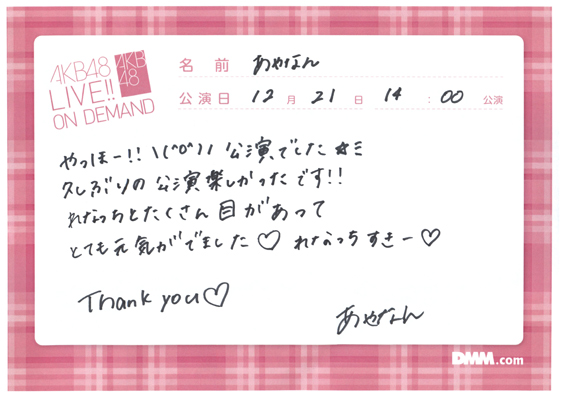 AKB48
LIVE!!
ON DEMAND
AKB
48
名前 あやなん
公演日 12月21日 14:00公演
やっほー!! \(^o^)/ 公演でした☆ミ
久しぶりの公演楽しかったです!!
れなっちとたくさん目があって
とても元気がでました♡ れなっちすきー♡
Thank you♡
あやなん
DMM.com